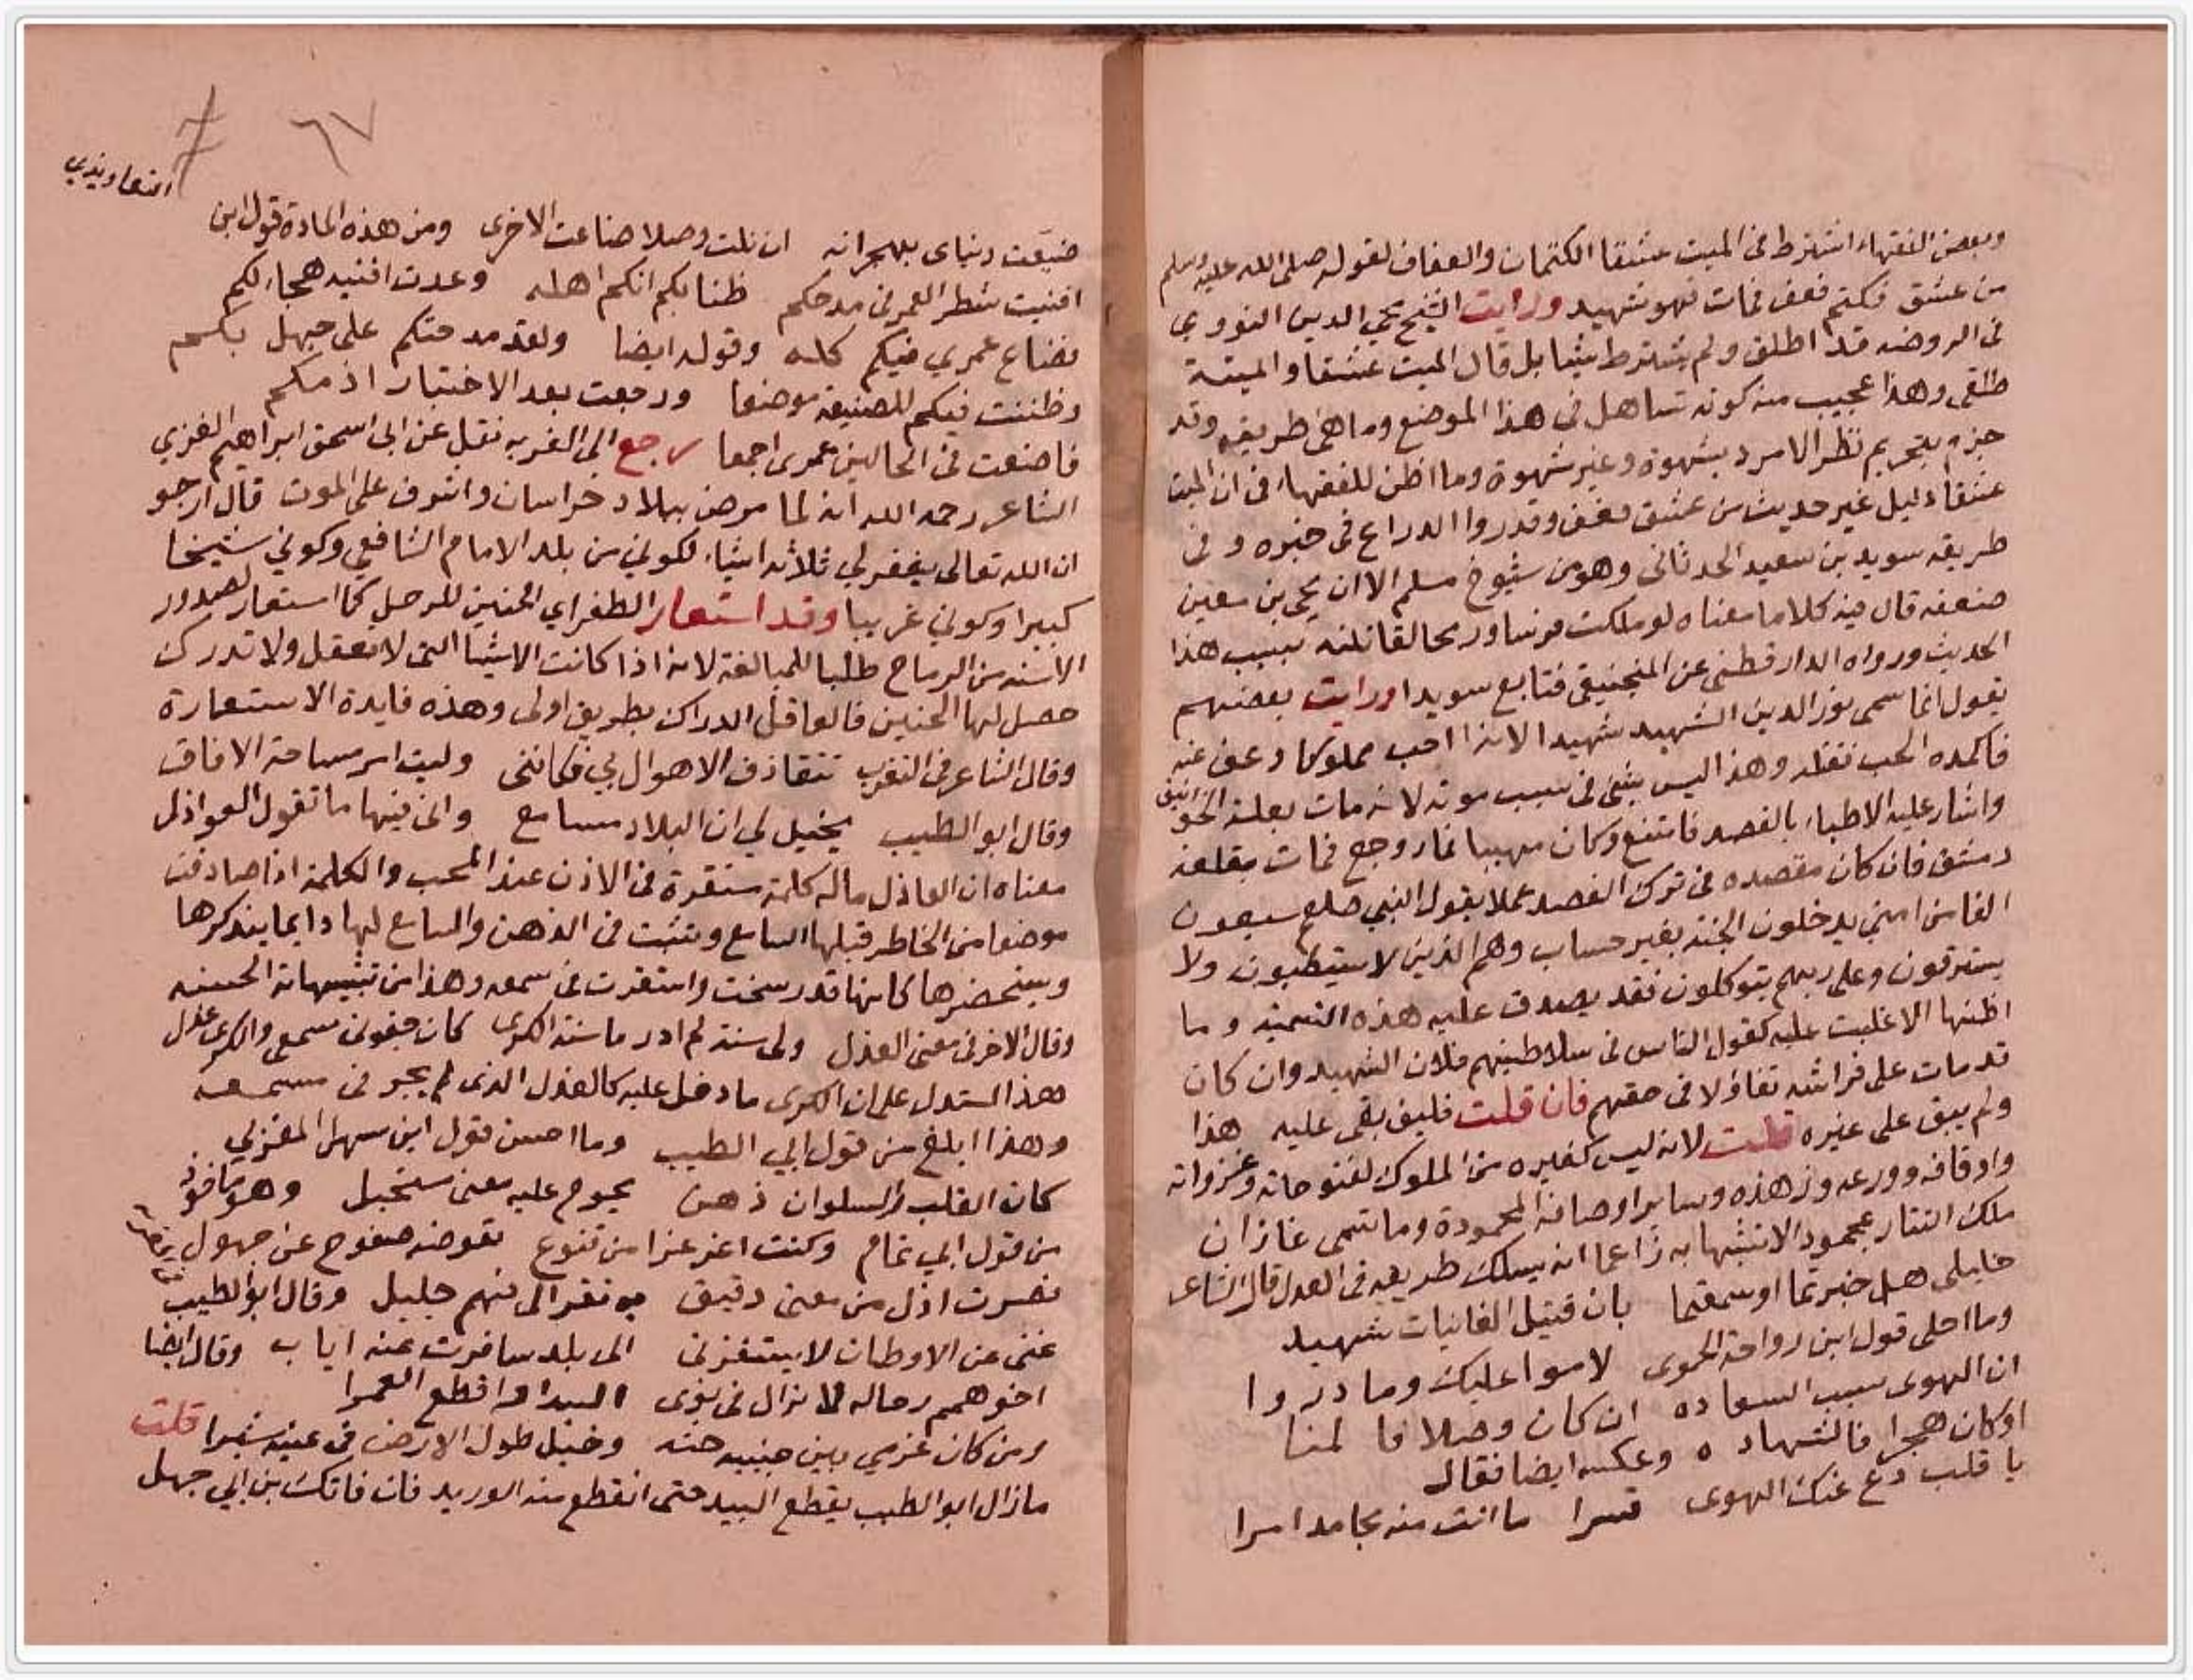 وبعض الفقهاء اشترط في الميت عشقا الكتمان والعفاف لقوله صلى الله عليه وسلم
من عشق فكتم فعف فمات فهو شهيد ورايت الشيخ محيي الدين النووي
في الروضه قد اطلق ولم يشترط شيئا بل قال الميت عشقا والميتة
طلقى وهذا عجيب منه كونه تساهل في هذا الموضع وما هي طريقه وقد
جزم بتحريم نظر الامرد بشهوة وغير شهوة وما اظن للفقهاء في ان الميت
عشقا دليل غير حديث من عشق فعف وقد رواالدراع في جزوه و في
طريقه سويد بن سعيد الحدثاني وهو من شيوخ مسلم الا ان يحيى بن معين
ضعفه قال فيه كلاما معناه لو ملكت فرسا ورمحا لقاتلته بسبب هذا
الحديث ورواه الدارقطني عن المنجنيقي فتابع سويدا ورايت بعضهم
يقول انما سمي نور الدين الشهيد شهيدا لانه احب مملوكا وعف عنه
فاكمده الحب فقتله وهذا ليس بشئ في سبب موته لانه مات بعلة الخوانيق
واشار عليه الاطباء بالفصد فامتنع وكان مهيبا فما روجع فمات بقلعة
دمشق فان كان مقصده في ترك الفصد عملا بقول النبي صلعم سبعون
الفا من امتي يدخلون الجنة بغير حساب وهم الذين لا يستطبون ولا
يسترقون وعلى ربهم يتوكلون فقد يصدق عليه هذه التسميه و ما
اظنها الا غلبت عليه كقول الناس في سلاطينهم فلان الشهيد وان كان
قد مات على فراشه تفاؤلا في حقهم فان قلت فليف بقى عليه هذا
ولم يبق على غيره قلت لانه ليس كغيره من الملوك لفتوحاته وغزواته
واوقافه وورعه وزهده وساير اوصافه المحمودة وما تسمى غازان
ملك التتار بمحمود الا تشبها به زاعما انه يسلك طريقه في العدل قال الشاعر
خليلي هل خبرتما او سمعتما بان قتيل الغانيات شهيد
وما احلى قول ابن رواحة الحموي لاموا عليك وما دروا
ان الهوى سبب السعاده ان كان وصلا فا لمنا
اوكان هجرا فالشهاد ه وعكسه ايضا فقال
يا قلب دع عنك الهوى قسرا ما انت منه بحامد امرا
٦٧
التعاويذي
ضيعت دنياى بهجرانه ان نلت وصلا ضاعت الاخرى ومن هذه المادة قول ابن
افنيت شطر العمر في مدحكم ظنا بكم انكم اهله وعدت افنيه هجاء لكم
فضاع عمري فيكم كله وقوله ايضا ولقد مدحتكم على جهل بكم
وظننت فيكم للصنيعة موضعا ورجعت بعد الاختبار اذمكم
فاضعت في الحالين عمرى اجمعا رجع الى الغربه نقل عن ابي اسحق ابراهيم الغزي
الشاعر رحمه الله انه لما مرض ببلاد خراسان واشرف على الموت قال ارجو
ان الله تعالى يغفر لي ثلاثة اشياء لكوني من بلد الامام الشافعي وكوني شيخا
كبيرا وكوني غريبا وقد استعار الطغراي الحنين للرحل كما استعار لصدور
الاسنه من الرماح طلبا للمبالغة لانه اذا كانت الاشيا التى لا تعقل ولا تدرك
حصل لها الحنين فالعاقل الدراك بطريق اولى وهذه فايدة الاستعارة
وقال الشاعر في التغرب تتقاذف الاهوال بي فكانني وليت امر مساحة الافاق
وقال ابو الطيب يخيل لي ان البلاد مسامع واني فيها ما تقول العواذل
معناه ان العاذل ماله كلمة مستقرة في الاذن عند المحب والكلمة اذا صادفت
موضعا من الخاطر قبلها السامع وتثبت في الذهن والسامع لها دايما يتذكرها
ويستحضرها كانها قد رسخت واستقرت في سمعه وهذا من تشبيهاته الحسنه
وقال الاخر في معنى العذل ولى سنة لم ادر ما سنة الكرى كان جفوني سمعي والكرى عذل
هذا استدل على ان الكرى ما دخل عليه كالعذل الذى لم يجر في مسمعه
وهذا ابلغ من قول ابي الطيب وما احسن قول ابن سهل المغربي
كان القلب والسلوان ذهن يحوم عليه معنى مستحيل وهو ماخوذ
من قول ابي تمام وكنت اعز عزا من قنوع تعوضه صفوح عن جهول
فصرت اذل من معنى دقيق به فقر الى فهم جليل وقال ابو الطيب
غنى عن الاوطان لا يستفزنى الى بلد سافرت عنه اياب وقال ايضا
اخو همم رحاله لا تزال في نوى البيدا واقطع العمرا
ومن كان عزمي بين جنبيه حثه وخيل طول الارض في عينه شبرا قلت
مازال ابو الطيب يقطع البيد حتى انقطع منه الوريد فان فاتك بن ابي جهل